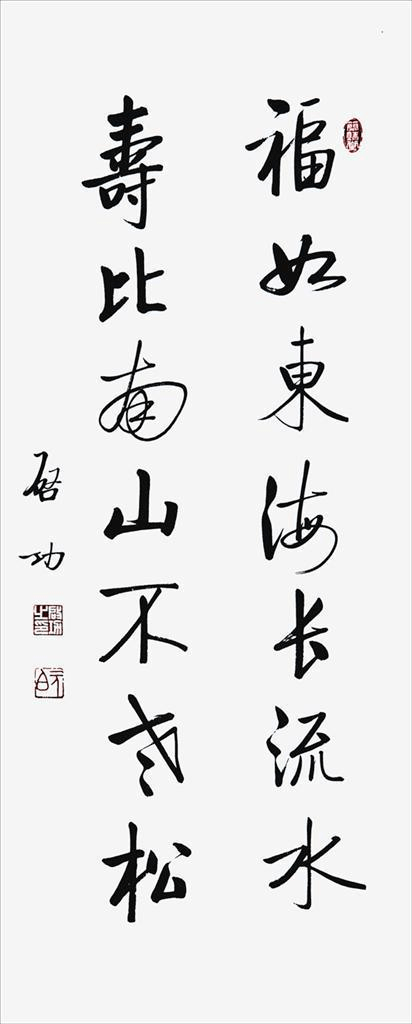 福如東海长流水
壽比南山不老松
啓功